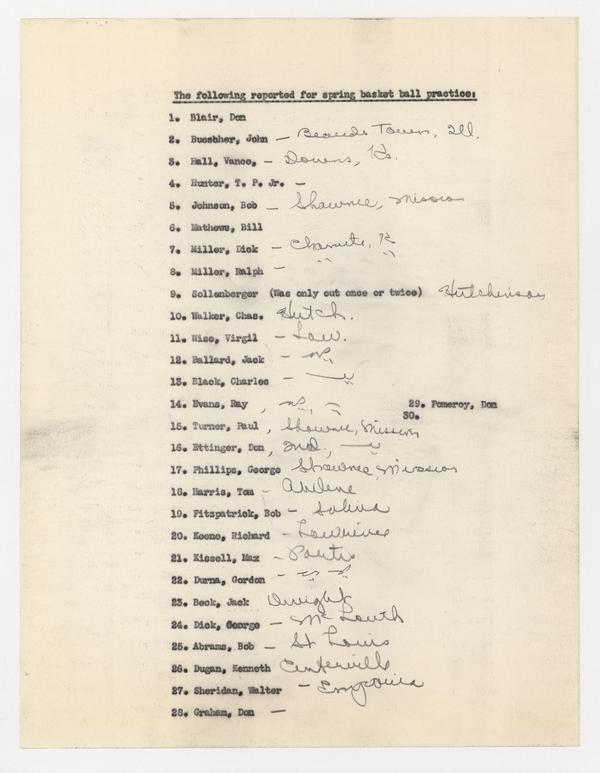 The following reported for spring basket ball practice:
1. Blair, Don
2. Buescher, John - Town, Ill.
3. Hall, Vance, - Downs, Ks.
4. Hunter, T. P. Jr. -
5. Johnson, Bob - Shawnee, Mission
6. Mathews, Bill
7. Miller, Dick - Chanute, K
8. Miller, Ralph - " "
9. Sollenberger (Was only out once or twice) Hutchinson
10. Walker, Chas. Hutch.
11. Wise, Virgil - Law.
12. Ballard, Jack -
13. Black, Charles -
14. Evans, Ray,
29. Pomeroy, Don
30.
15. Turner, Paul, Shawnee, Mission
16. Ettinger, Don,
17. Phillips, George Shawnee, Mission
18. Harris, Tom - Abilene
19. Fitzpatrick, Bob - Salina
20. Keene, Richard - Lawrence
21. Kissell, Max - Portis
22. Durna, Gordon -
23. Beck, Jack Dwight
24. Dick, George - McLouth
25. Abrams, Bob - St Louis
26. Dugan, Kenneth Centerville
27. Sheridan, Walter - Emporia
28. Graham, Don -